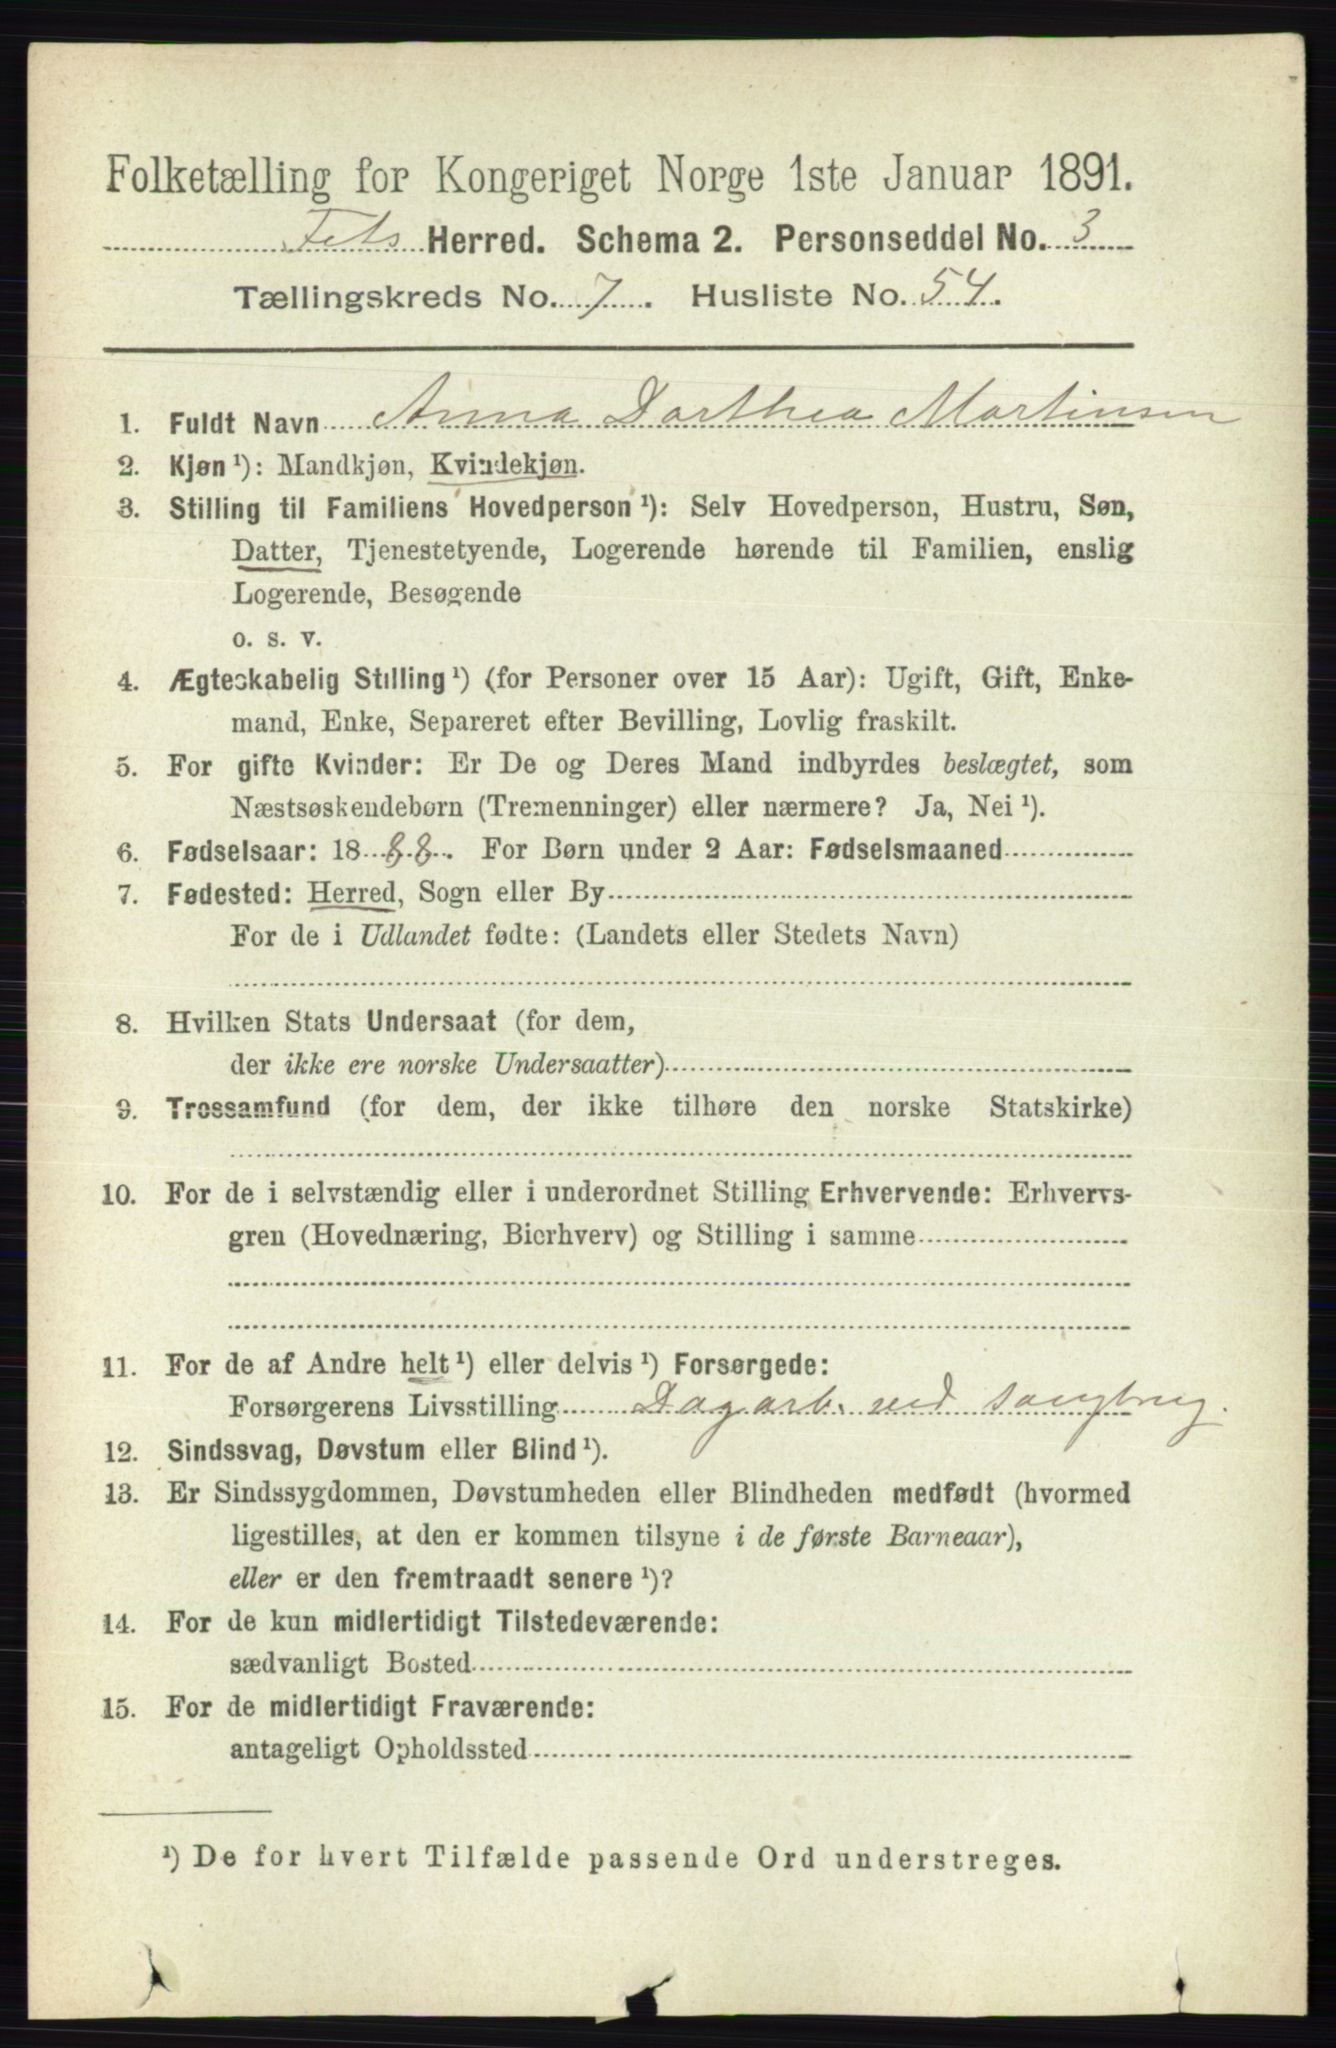 Folketælling for Kongeriget Norge 1ste Januar 1891.
Fets Herred. Schema 2. Personseddel No. 3
Tællingskreds No. 7. Husliste No. 54.
1. Fuldt Navn Anna Dorthea Martinsen
2. Kjøn¹): Mandkjøn, Kvindekjøn.
3. Stilling til Familiens Hovedperson¹): Selv Hovedperson, Hustru, Søn,
Datter, Tjenestetyende, Logerende hørende til Familien, enslig
Logerende, Besøgende
o. s. v.
4. Ægteskabelig Stilling¹) (for Personer over 15 Aar): Ugift, Gift, Enke-
mand, Enke, Separeret efter Bevilling, Lovlig fraskilt.
5. For gifte Kvinder: Er De og Deres Mand indbyrdes beslægtet, som
Næstsøskendebørn (Tremenninger) eller nærmere? Ja, Nei¹).
6. Fødselsaar: 1888. For Børn under 2 Aar: Fødselsmaaned
7. Fødested: Herred, Sogn eller By
For de i Udlandet fødte: (Landets eller Stedets Navn)
8. Hvilken Stats Undersaat (for dem,
der ikke ere norske Undersaatter)
9. Trossamfund (for dem, der ikke tilhøre den norske Statskirke)
10. For de i selvstændig eller i underordnet Stilling Erhvervende: Erhvervs-
gren (Hovednæring, Bierhverv) og Stilling i samme
11. For de af Andre helt¹) eller delvis¹) Forsørgede:
Forsørgerens Livsstilling Dagarb. ved saugbrug.
12. Sindssvag, Døvstum eller Blind¹).
13. Er Sindssygdommen, Døvstumheden eller Blindheden medfødt (hvormed
ligestilles, at den er kommen tilsyne i de første Barneaar),
eller er den fremtraadt senere¹)?
14. For de kun midlertidigt Tilstedeværende:
sædvanligt Bosted
15. For de midlertidigt Fraværende:
antageligt Opholdssted
¹) De for hvert Tilfælde passende Ord understreges.